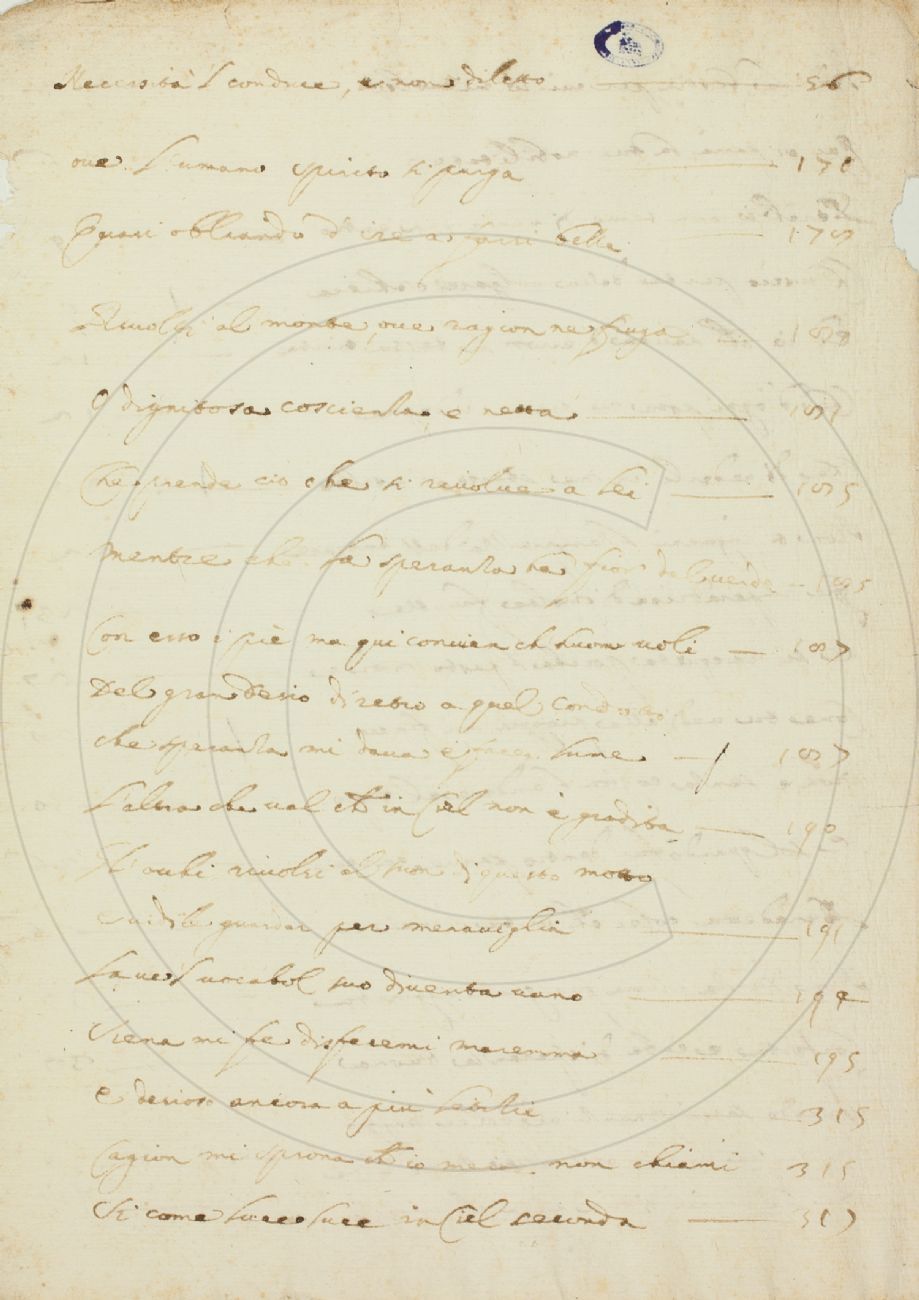 Necessità l conduce, e non diletto 56
oue l umano spirito si purga 171
Quasi obliando d ire a farsi belle 178
Riuolti al monte oue ragion ne fruga 180
O dignitosa coscienza e netta 181
Che prende ciò che si riuolue a lei 185
mentre che la speranza ha fior del uerde 185
Con esso i piè ma qui conuien ch huom uoli 187
Del gran desio diretro a quel condotto
che speranza mi daua e facea lume 187
L'altra che ual ch in Ciel non è gradita 190
Gli occhi riuolsi al suon di questo motto
e uidile guardar per merauiglia 191
La ue l uocabol suo diuenta uano 194
Siena mi fe disfecemi maremma 195
e desioso ancora a più letitie 315
Cagion mi sprona ch io merce non chiami 315
Si come luce luce in Ciel seconda 317